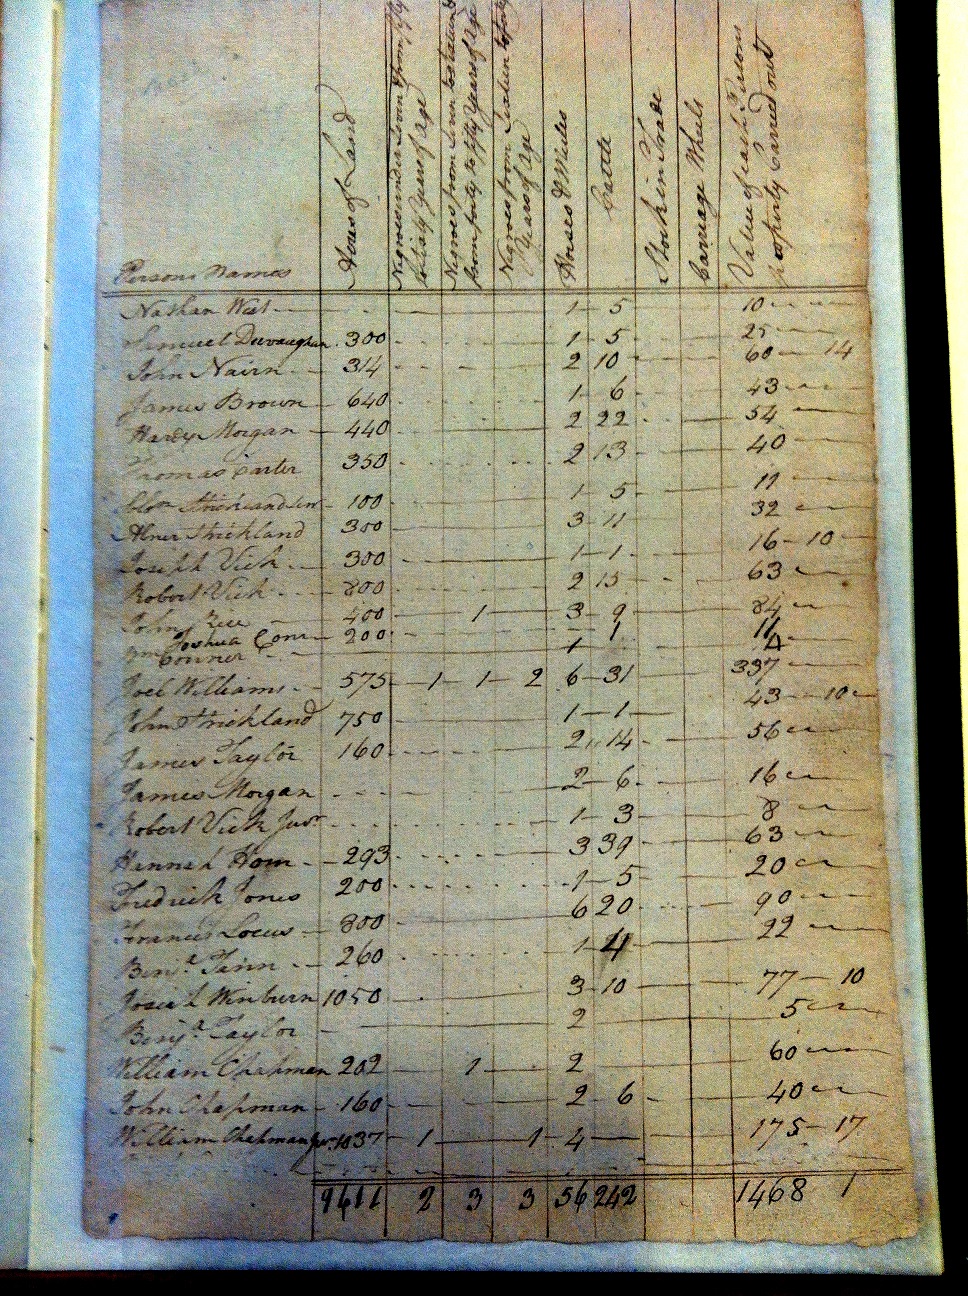 Persons Names Acres of Land Negroes under Seven & from fifty to sixty Years of Age Negroes from Seven to Sixteen & from forty to fifty Years of Age Negroes from Sixteen to forty Years of Age Horses & Mules Cattle Stock in Trade Carriage Wheels Value of each Persons property Carried out
Nathan West 1 5 10
Samuel Devaughan 300 1 5 25
John Nairn 314 2 10 60 14
James Brown 640 1 6 43
Hardy Morgan 440 2 22 54
Thomas Carter 350 2 13 40
Strickland 100 1 5 11
Abner Strickland 300 3 11 32
Joseph Vick 300 1 1 16 10
Robert Vick 800 2 15 63
John Rice 400 1 3 9 84
Joshua Conn 200 1 11
Conner 1 4
Joel Williams 575 1 1 2 6 31 337
John Strickland 750 1 1 43 10
James Taylor 160 2 14 56
James Morgan 2 6 16
Robert Vick Junr 1 3 8
Hannah Horn 293 3 39 63
Fredrick Jones 200 1 5 20
Francis Locus 800 6 20 90
Benja Tann 260 1 4 22
Josiah Winburn 1050 3 10 77 10
Benja Taylor 2 5
William Chapman 202 1 2 60
John Chapman 160 2 6 40
William Chapman 1037 1 1 4 175 17
9611 2 3 3 56 242 1468 1